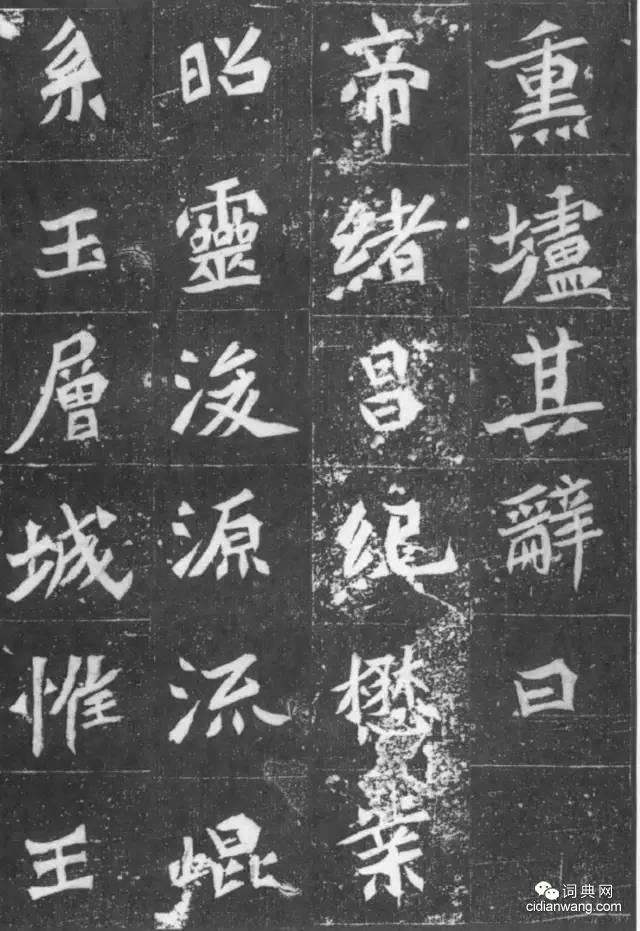 熏壚其辭曰
帝緒昌紀懋業
昭靈浚源流崐
系玉層城惟王
词典网
cidianwang.com